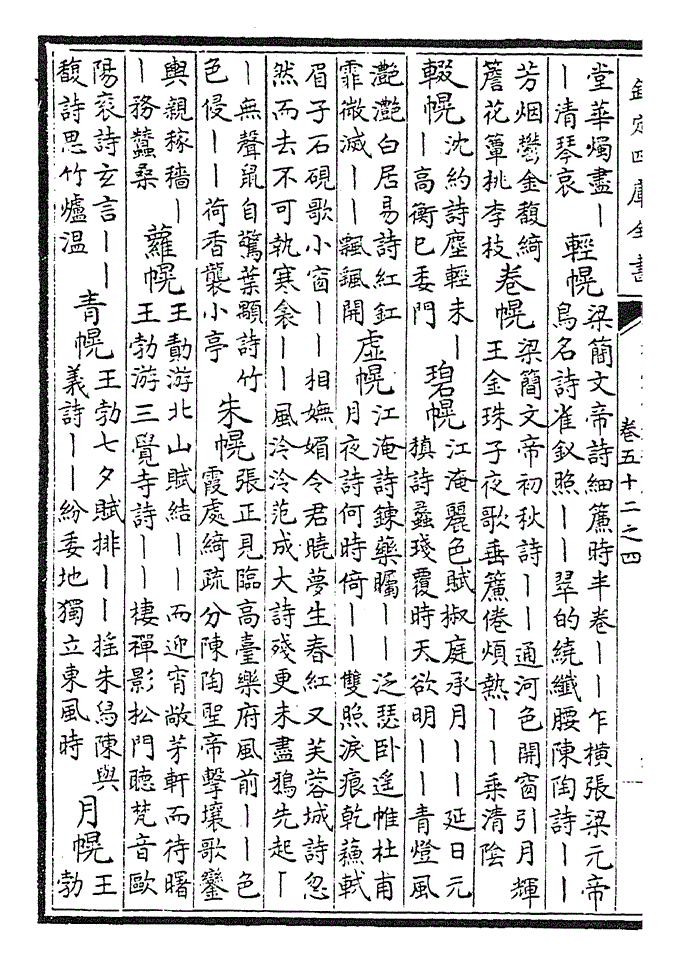 欽定四庫全書
卷五十二之四
堂華燭盡丨
丨清琴哀
輕幌
梁簡文帝詩細簾時半卷丨丨乍橫張梁元帝
鳥名詩雀釵照丨丨翠的繞纖腰陳陶詩丨丨
芳烟鬱金馥綺
簷花簟桃李枝
卷幌
梁簡文帝初秋詩丨丨通河色開窗引月輝
王金珠子夜歌垂簾倦煩熱丨丨乘清陰
輟幌
沈約詩塵輕未丨
丨高衡已委門
碧幌
江淹麗色賦椒庭承月丨丨延日元
稹詩蠡琖覆時天欲明丨丨青燈風
灧灧白居易詩紅釭
霏微滅丨丨飄颻開
虛幌
江淹詩鍊藥矚丨丨泛瑟卧遙帷杜甫
月夜詩何時倚丨丨雙照淚痕乾蘇軾
眉子石硯歌小窗丨丨相嫵媚令君曉夢生春紅又芙蓉城詩忽
然而去不可執寒衾丨丨風泠泠范成大詩殘更未盡鴉先起丨
丨無聲鼠自驚葉顒詩竹
色侵丨丨荷香襲小亭
朱幌
張正見臨高臺樂府風前丨丨色
霞處綺疏分陳陶聖帝擊壤歌鑾
輿親稼穡丨
丨務蠶桑
蘿幌
王勣游北山賦結丨丨而迎宵敞茅軒而待曙
王勃游三覺寺詩丨丨棲禪影松門聽梵音歐
陽衮詩玄言丨丨
馥詩思竹爐溫
青幌
王勃七夕賦排丨丨搖朱舄陳與
義詩丨丨紛委地獨立東風時
月幌
王
勃